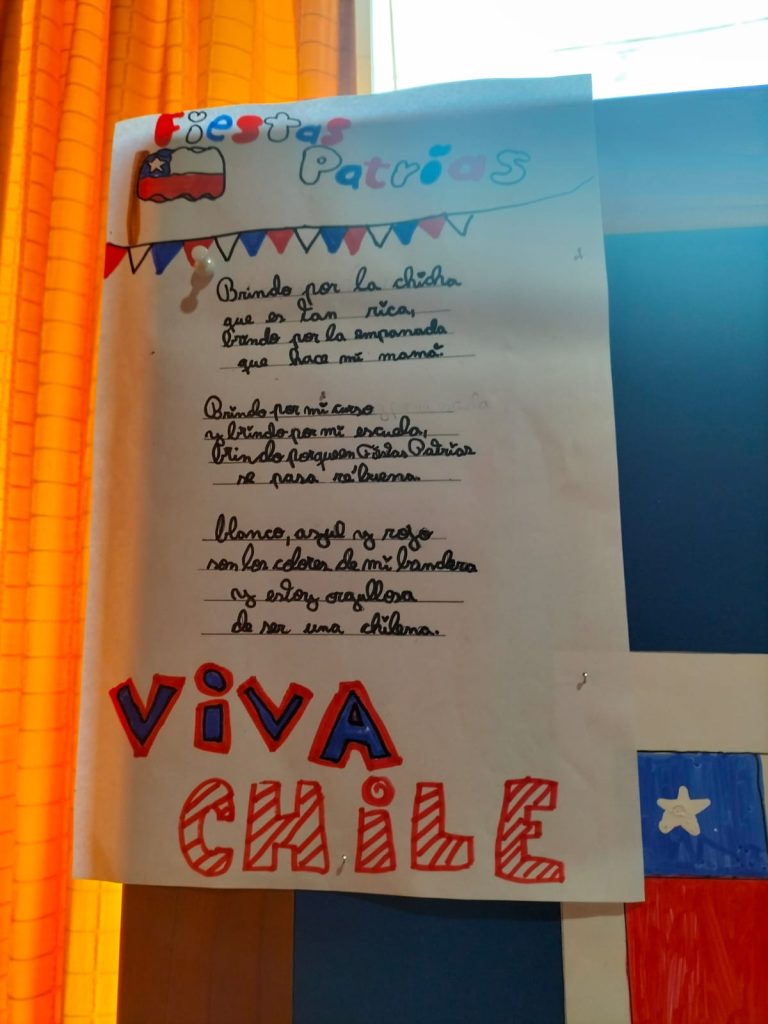 Fiestas
Patrias
Brindo por la chicha
que es tan rica,
brindo por la empanada
que hace mi mamá.
Brindo por mi curso
y brindo por mi escuela,
brindo porque en Fiestas Patrias
se pasa re'buena.
blanco, azul y rojo
son los colores de mi bandera
y estoy orgullosa
de ser una chilena.
VIVA
CHILE